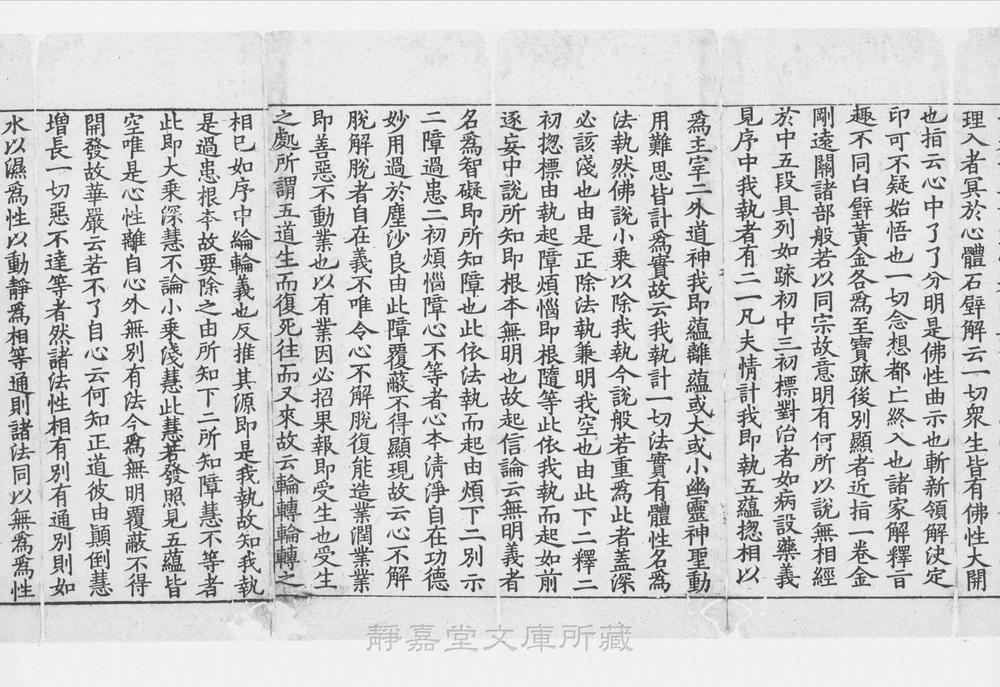 理入者冥於心體石壁解云一切衆生皆有佛性大開
也指云心中了了分明是佛性曲示也斬新領解決定
印可不疑始悟也一切念想都亡終入也諸家解釋旨
趣不同白璧黃金各爲至寶踈後別顯者近指一卷金
剛遠關諸部般若以同宗故意明有何所以說無相經
於中五段具列如踈初中三初標對治者如病設藥義
見序中我執者有二一凡夫情計我即執五蘊揔相以
爲主宰二外道神我即蘊離蘊或大或小幽靈神聖動
用難思皆計爲實故云我執計一切法實有體性名爲
法執然佛說小乗以除我執今說般若重爲此者蓋深
必該淺也由是正除法執兼明我空也由此下二釋二
初揔標由執起障煩惱即根隨等此依我執而起如前
逐妄中說所知即根本無明也故起信論云無明義者
名爲智礙即所知障也此依法執而起由煩下二別示
二障過患二初煩惱障心不等者心本清淨自在功德
妙用過於塵沙良由此障覆蔽不得顯現故云心不解
脫解脫者自在義不唯令心不解脫復能造業潤業業
即善惡不動業也以有業因必招果報即受生也受生
之處所謂五道生而復死往而又來故云輪轉輪轉之
相已如序中綸輪義也反推其源即是我執故知我執
是過患根本故要除之由所知下二所知障慧不等者
此即大乗深慧不論小乗淺慧此慧若發照見五蘊皆
空唯是心性離自心外無別有法今爲無明覆蔽不得
開發故華嚴云若不了自心云何知正道彼由顚倒慧
增長一切惡不達等者然諸法性相有別有通別則如
水以濕爲性以動靜爲相等通則諸法同以無爲爲性
靜嘉堂文庫所藏